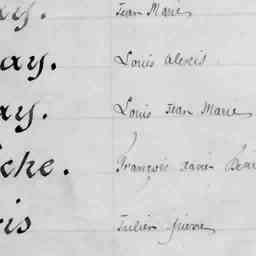 ay. Jean Marie
ay. Louis Alexis
ay. Louis Jean Marie
che. François
is Julien Pierre